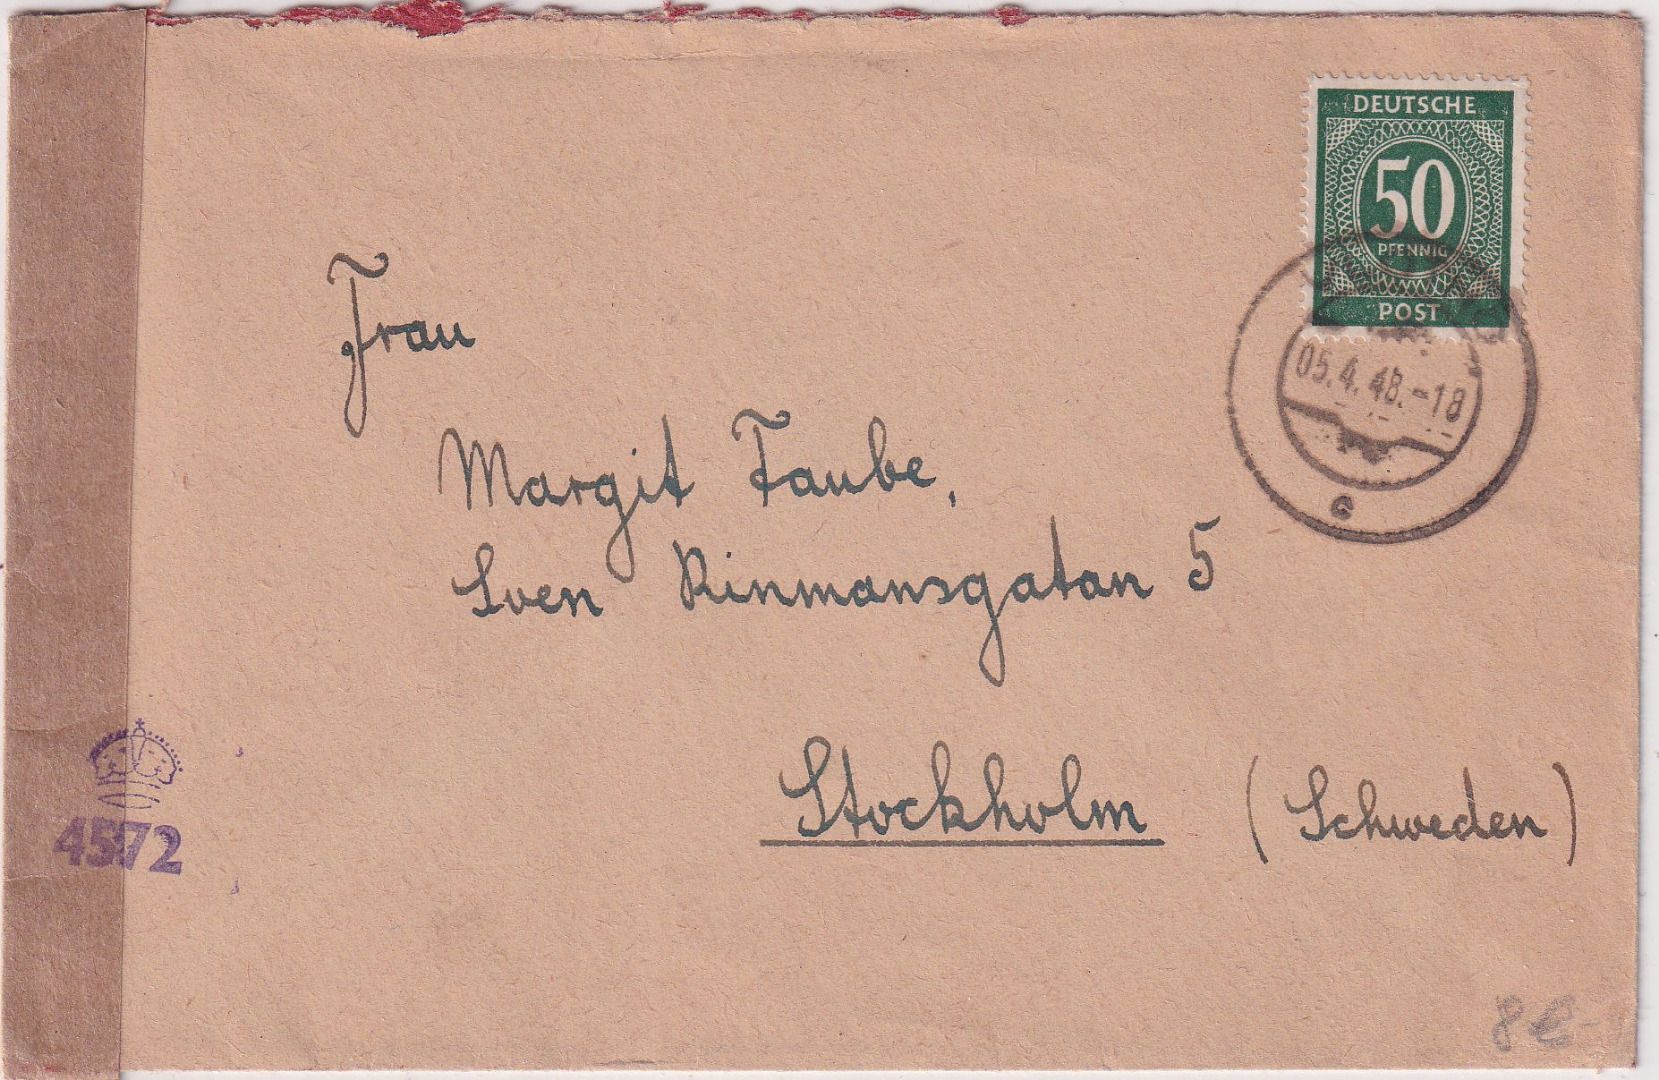 DEUTSCHE
50
PFENNIG
POST
05.4.48.-18
c
Frau
Margit Taube,
Sven Rinmansgatan 5
Stockholm (Schweden)
4572
8€-